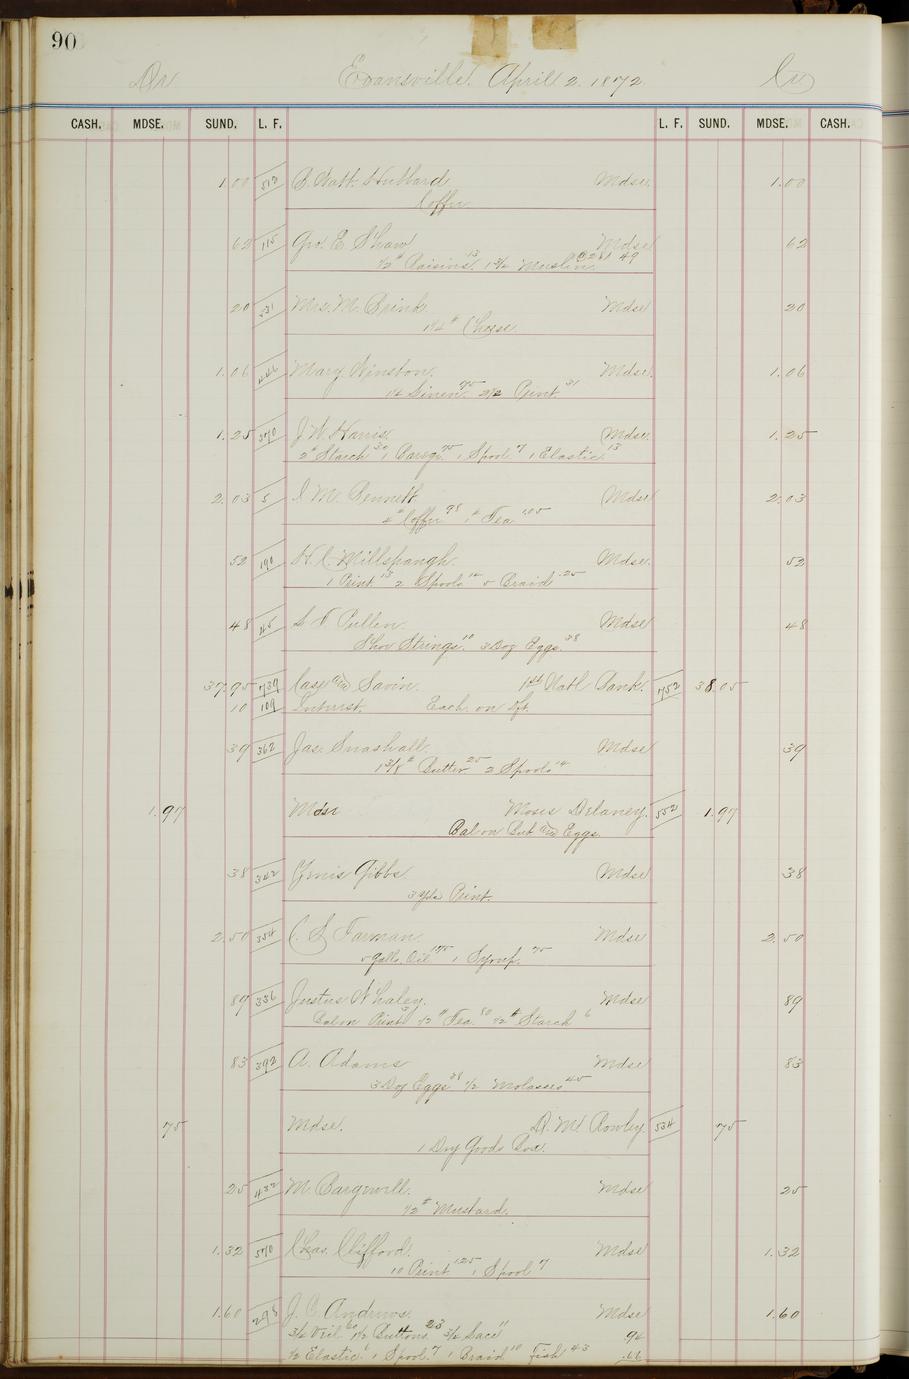 90
Dr Evansville April 2. 1872. Cr
CASH. MDSE. SUND. L. F. L. F. SUND. MDSE. CASH.
1.00 Hubbard Mdse. 1.00
Coffee
62 115 Geo. E. Shaw Mdse 62
1/2 # Raisins 13 1 3/4 Muslin 49
20 531 Mrs. M. Brink Mdse 20
Cheese
1.06 446 Mary Winston. Mdse. 1.06
Linen 75 2 1/2 Print 31
1.25 370 J. W. Harris. Mdse. 1.25
2 # Starch 30 1 45 1 Spool 7 1 Elastic 13
2.03 5 I. M. Bennett Mdse 2.03
4 # Coffee 98 1 # Tea 1.05
52 190 H. C. Millspaugh. Mdse. 52
1 Print 13 2 Spools 14 5 Braid 25
48 45 L. T. Pullen. Mdse 48
Shoe Strings 10 3 Doz Eggs. 38
37.95 739 Case and Savin. 1st Natl Bank. 752 38.05
10 109 Interest. Each. on Dft.
39 362 Jas. Snashall. Mdse 39
1 3/8 # Butter 25 2 Spools 14
1.97 Mdse Moses Delaney. 552 1.97
Bal on But and Eggs.
38 342 Gibbs Mdse 38
3 yds Print.
2.50 354 C. S. Farman. Mdse 2.50
5 galls. Oil 1.75 1 Syrup. 75
89 336 Justus Whaley. Mdse 89
Bal on Print 3 1/2 # Tea. 80 1/2 # Starch 6
83 392 A. Adams Mdse 83
3 Doz Eggs 38 1/2 Molasses 45
75 Mdse. D. M. Rowley 534 75
1 Dry Goods Box.
25 432 M. Mdse 25
1/2 # Mustard.
1.32 570 Chas. Clifford. Mdse 1.32
10 Print 1.25 1 Spool 7
1.60 298 J. C. Andrews. Mdse 1.60
3/4 Veil 60 1 1/2 Buttons. 23 3/4 Lace 11 94
1/2 Elastic 6 1 Spool. 7 1 Braid 10 Fish 43 .66